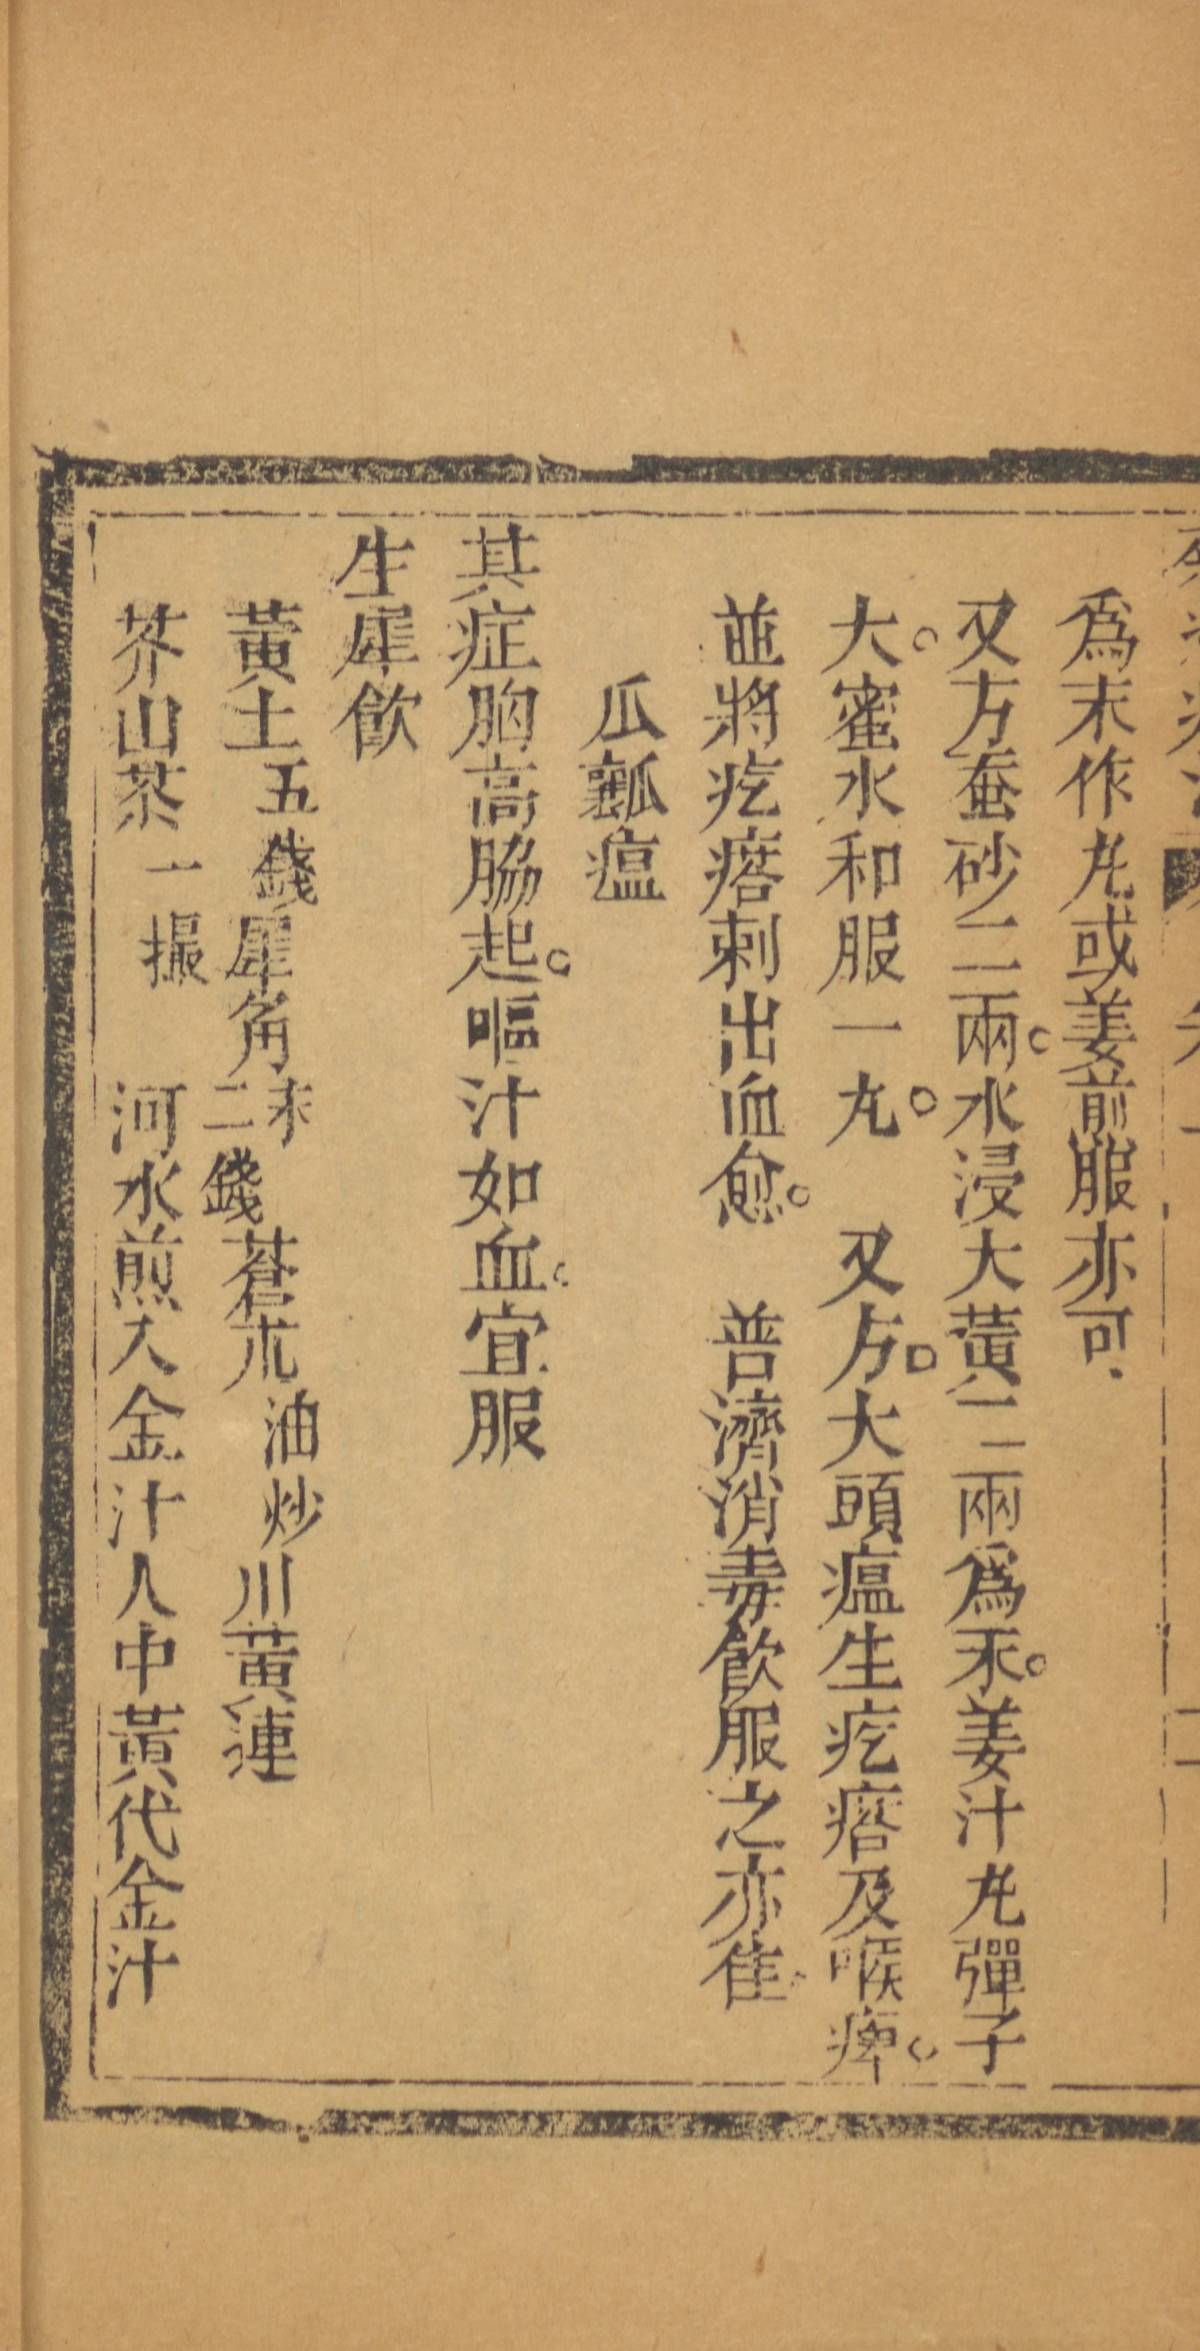 為末作丸或姜煎服亦可
又方蚕砂二兩水浸大黃二兩為末姜汁丸彈子
大蜜水和服一丸　又方大頭瘟生疙瘩及喉痺
並將疙瘩刺出血愈　普濟消毒飲服之亦佳
瓜瓤瘟
其症胸高脇起嘔汁如血宜服
生犀飲
黃土五錢犀角末二錢蒼朮油炒川黃連
芥山茶一撮　河水煎入金汁人中黃代金汁